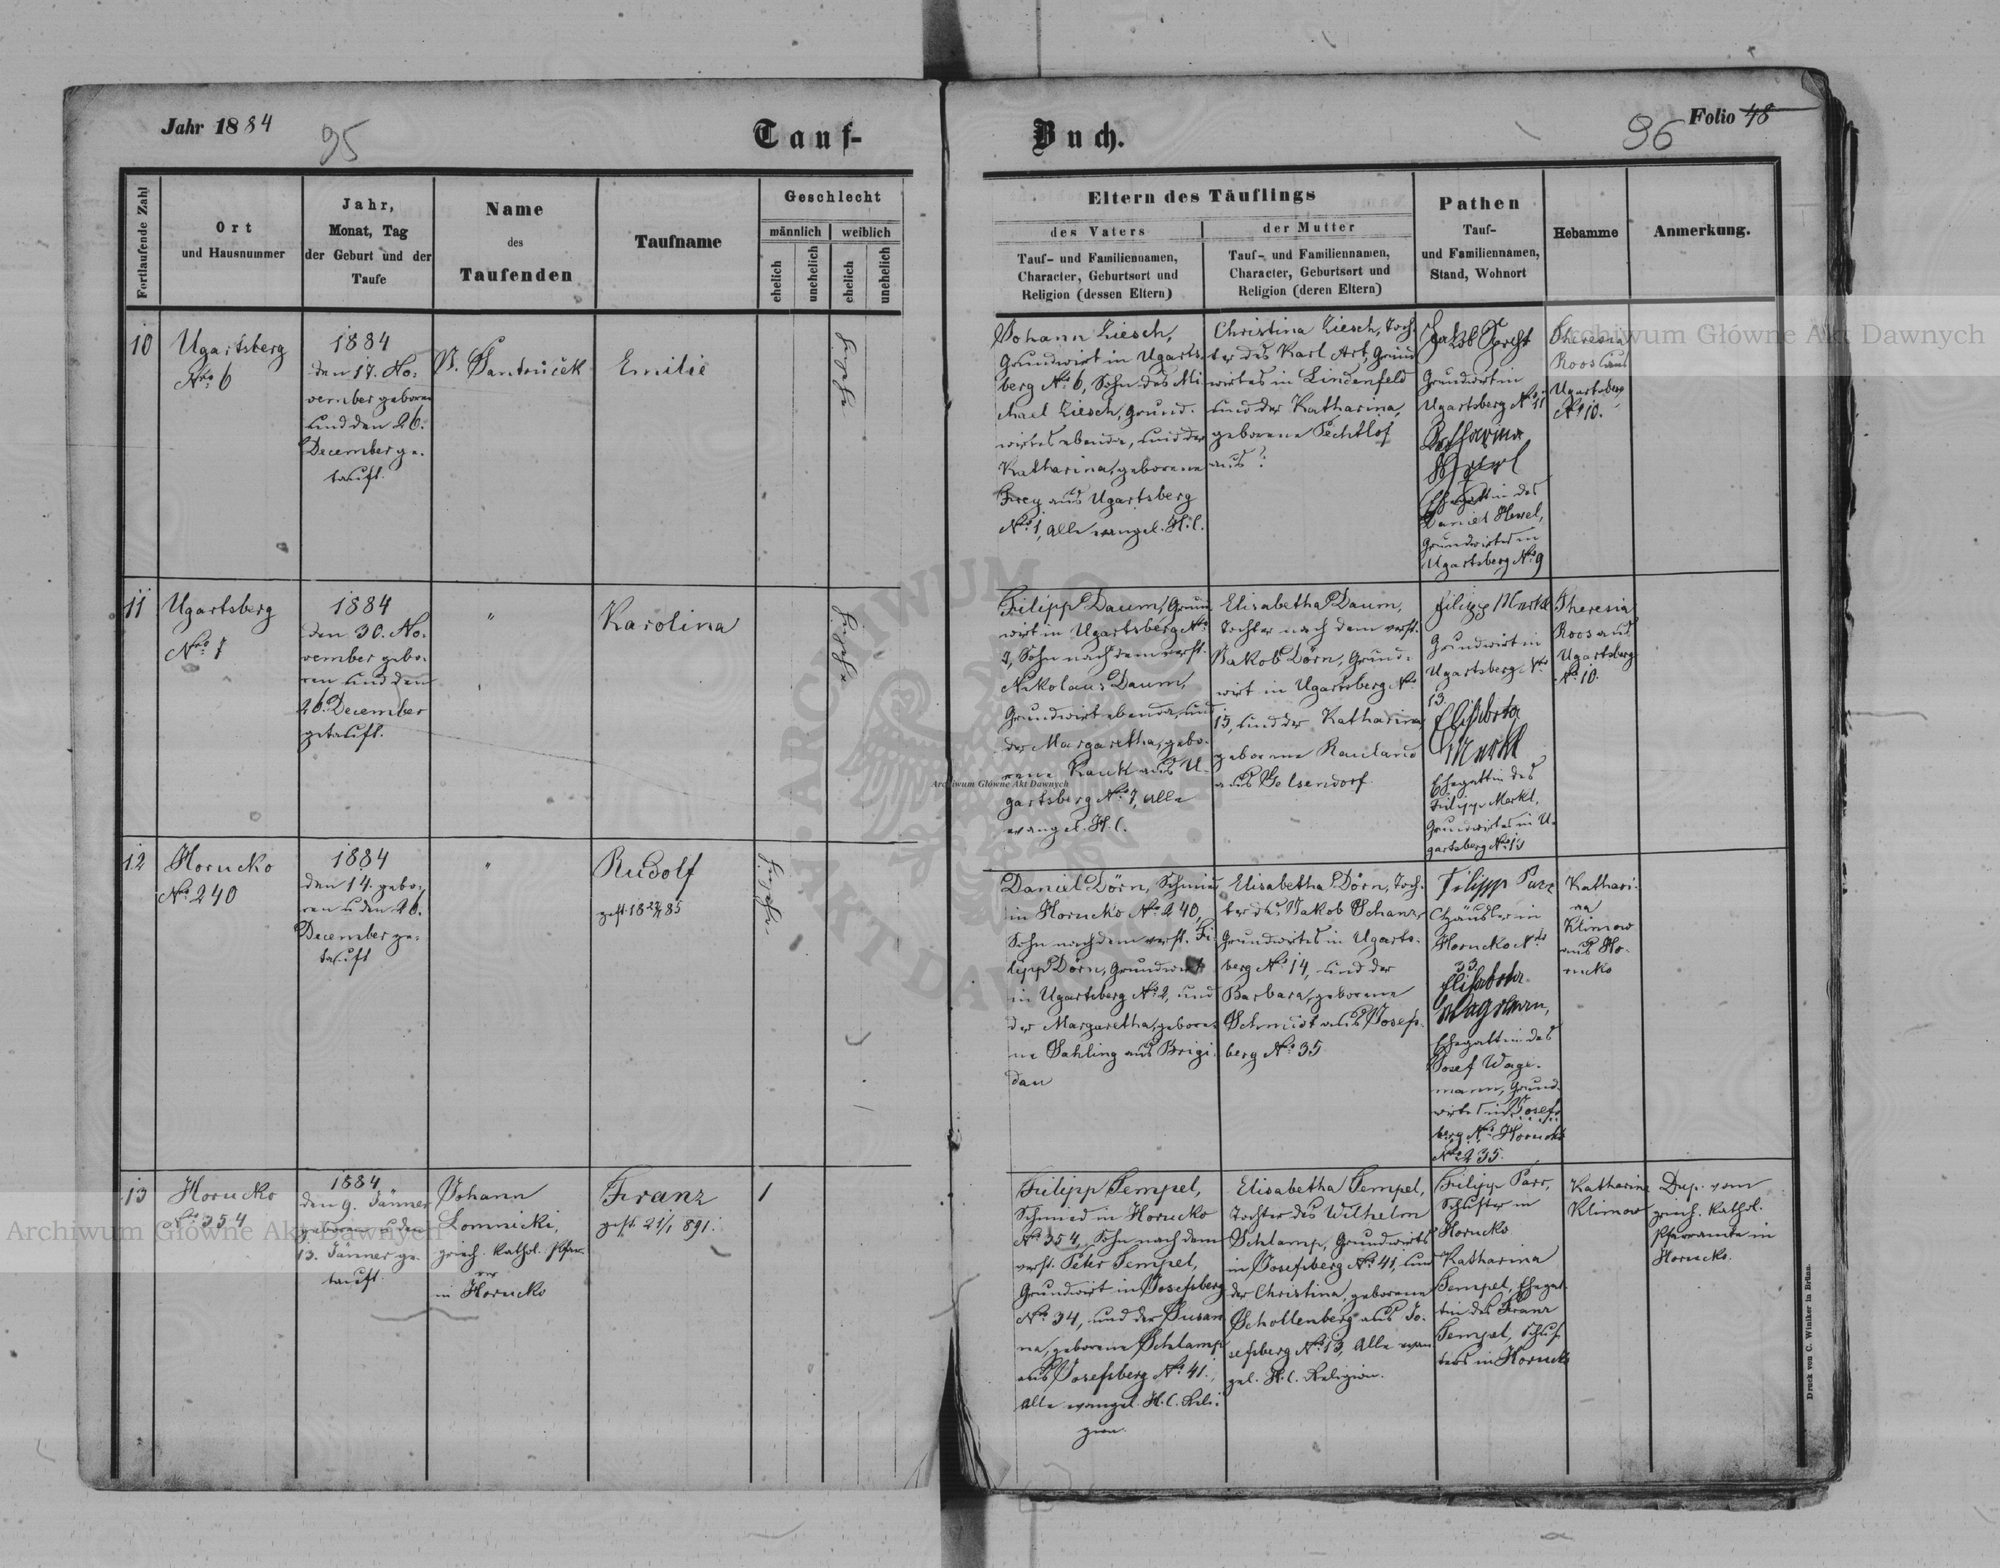 Jahr 1884
95
Tauf-
Buch.
96
Folio 48
Fortlaufende Zahl
Ort
und Hausnummer
Jahr,
Monat, Tag
der Geburt und der
Taufe
Name
des
Taufenden
Taufname
Geschlecht
männlich
weiblich
ehelich
unehelich
ehelich
unehelich
Eltern des Täuflings
des Vaters
Tauf- und Familiennamen,
Character, Geburtsort und
Religion (dessen Eltern)
der Mutter
Tauf- und Familiennamen,
Character, Geburtsort und
Religion (deren Eltern)
Pathen
Tauf-
und Familiennamen,
Stand, Wohnort
Hebamme
Anmerkung.
10
Ugartsberg
Nro 6
1884
den 17. No-
vember geboren
und den 26.
December ge-
tauft.
Emilie
Johann Ziesch,
Grundwirt in Ugarts-
berg No 6, Sohn des Mi-
chael Ziesch, Grund-
wirtes ebenda, und der
Katharina, geborene
Frey aus Ugartsberg
No 1, alle evangel. H.C.
Christina Ziesch, Toch-
ter des Karl Art, Grund
wirtes in Lindenfeld
und der Katharina,
geborene
aus ?
Jakob
Grundwirt in
Ugartsberg No 11
Katharina
Ehegattin des
Daniel
Grundwirtes in
Ugartsberg No 9
Theresia
Roos aus
Ugartsberg
No 10.
11
Ugartsberg
Nro 7
1884
den 30. No-
vember gebo-
ren und den
26. December
getauft.
"
Karolina
Filipp Daum, Grund
wirt in Ugartsberg No
7, Sohn nach dem verst.
Nikolaus Daum,
Grundwirt ebenda, und
der Margaretha, gebo-
rene Kauk aus U-
gartsberg No 7, alle
evangel. H.C.
Elisabetha Daum,
Tochter nach dem verst.
Jakob Dörn, Grund-
wirt in Ugartsberg No
15, und der Katharina,
geborene
aus Gelsendorf
Filipp Merkl
Grundwirt in
Ugartsberg No
13
Elisabeta
Merkl
Ehegattin des
Filipp Merkl,
Grundwirtes in U-
gartsberg No 13
Theresia
Roos aus
Ugartsberg
No 10.
12
Horucko
No 240
1884
den 14. gebo-
ren u den 26.
December ge-
tauft
"
Rudolf
Daniel Dörn, Schmied
in Horucko No 240,
Sohn nach dem verst. Fi-
lipp Dörn, Grundwirt
in Ugartsberg No 2, und
der Margaretha, gebore-
ne Sahling aus Brigi-
dau
Elisabetha Dörn, Toch-
ter des Jakob Schanz,
Grundwirtes in Ugarts-
berg No 14, und der
Barbara, geborene
Schmidt aus Josefs-
berg No 35
Filipp Parr
Häusler in
Horucko No
33
Elisabeta
Wagemann,
Ehegattin des
Josef Wage-
mann, Grund-
wirtes in Josefs-
berg No Horucko
No 235.
Kathari-
na
Klimow
aus Ho-
rucko
13
Horucko
No 354
1884
den 9. Jänner
geboren u den
13. Jänner ge-
tauft.
Johann
Lomnicki,
griech. kathol. Pfar-
rer
in Horucko
Franz
gest. 21/1 891.
1
Filipp Tempel,
Schmied in Horucko
No 354, Sohn nach dem
verst. Peter Tempel,
Grundwirt in Josefsberg
No 34, und der Susan
na, geborene Schlamp
aus Josefsberg No 41.,
alle evangel. H.C. Reli-
gion.
Elisabetha Tempel,
Tochter des Wilhelm
Schlamp, Grundwirts
in Josefsberg No 41, und
der Christina, geborene
Schollenberg aus Jo-
sefsberg No 13, alle evan
gel. H.C. Religion.
Filipp Parr,
Schuster in
Horucko
Katharina
Tempel, Ehegat-
tin des Franz
Tempel, Schus-
ters in Horucko
Katharina
Klimow
Dup. vom
griech. kathol.
Pfarramte in
Horucko.
Druck von C. Winiker in Brünn.
Archiwum Główne Akt Dawnych
Archiwum Główne Akt Dawnych
Archiwum Główne Akt Dawnych
ARCHIWUM
AKT DAWNYCH